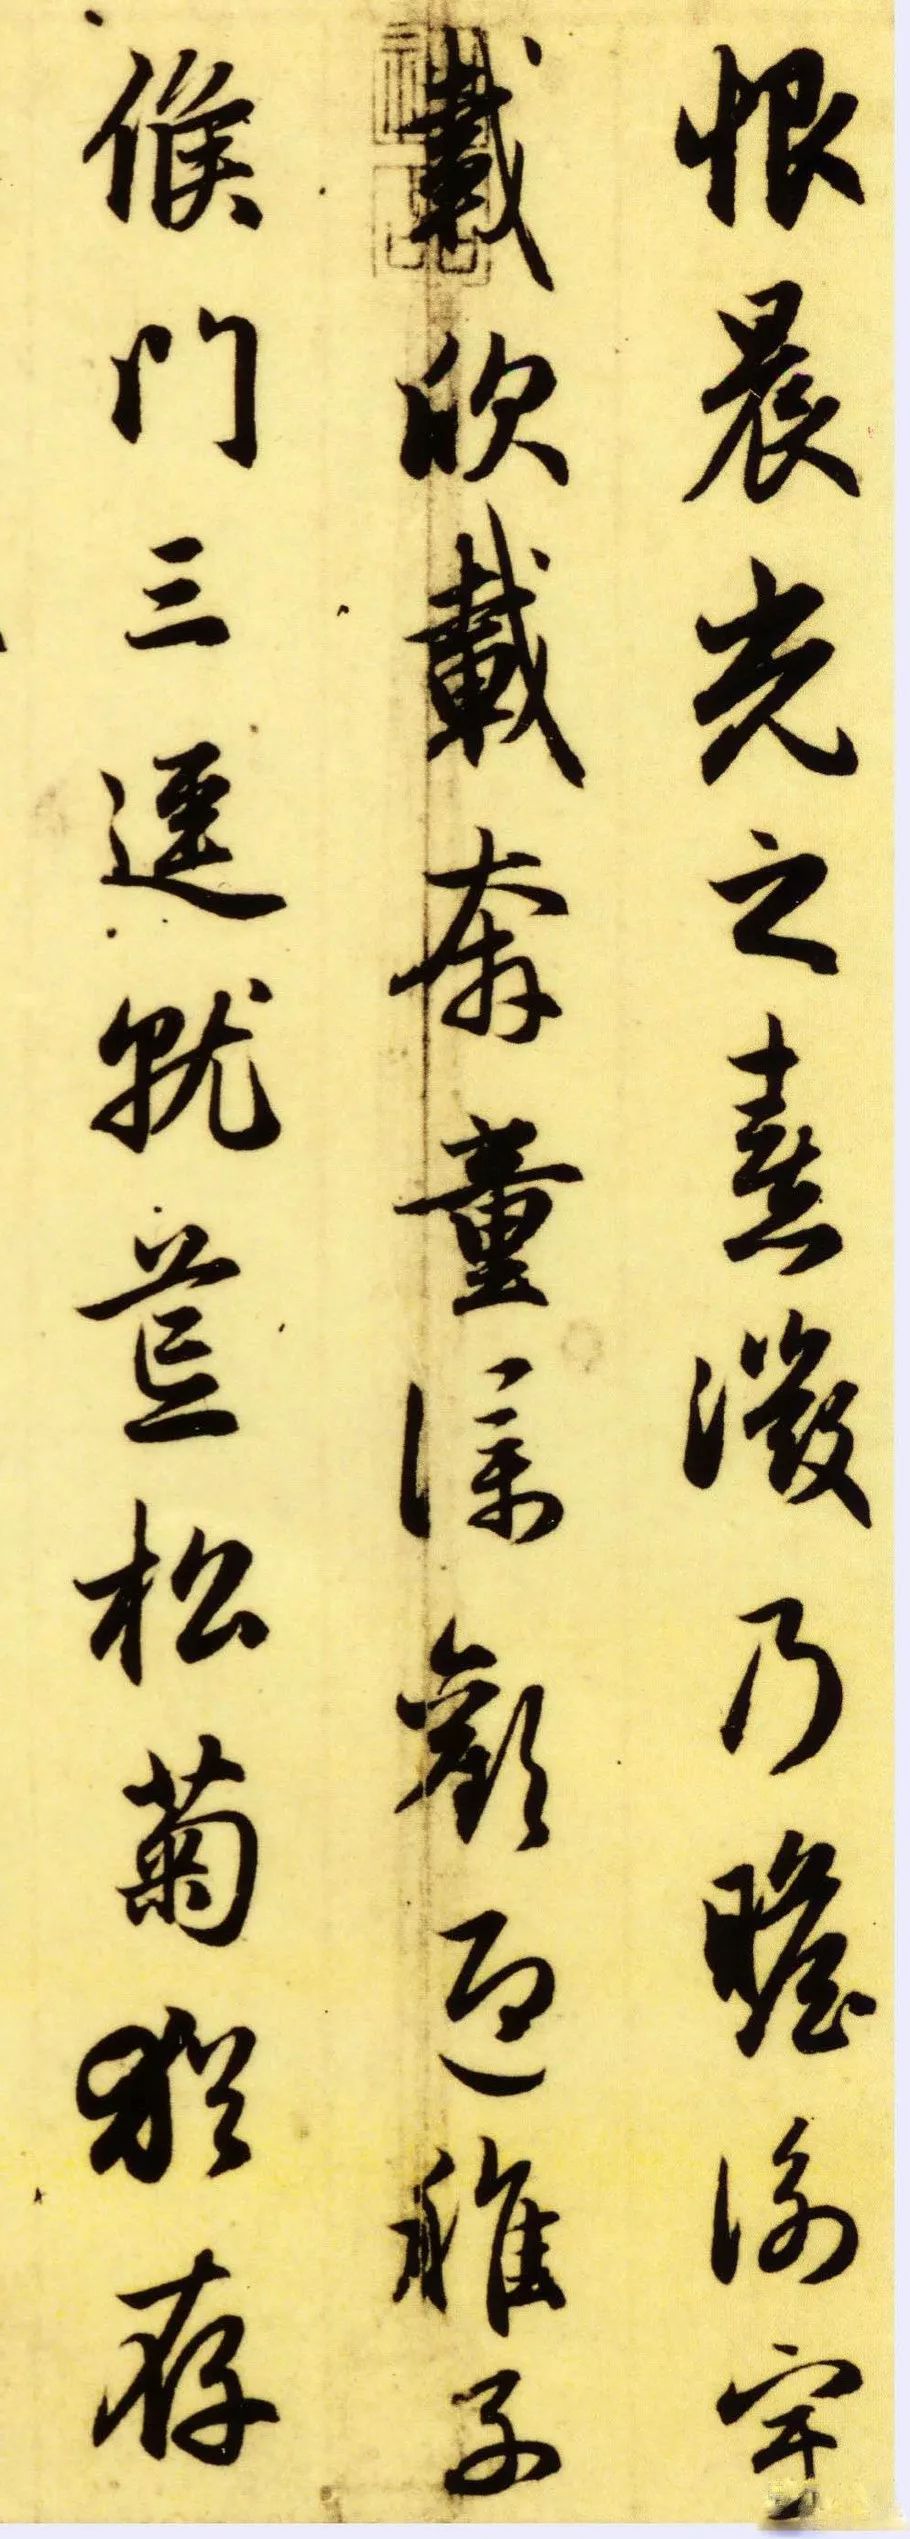 恨晨光之熹微乃瞻衡宇
載欣載奔童僕歡迎稚子
候門三逕就荒松菊猶存